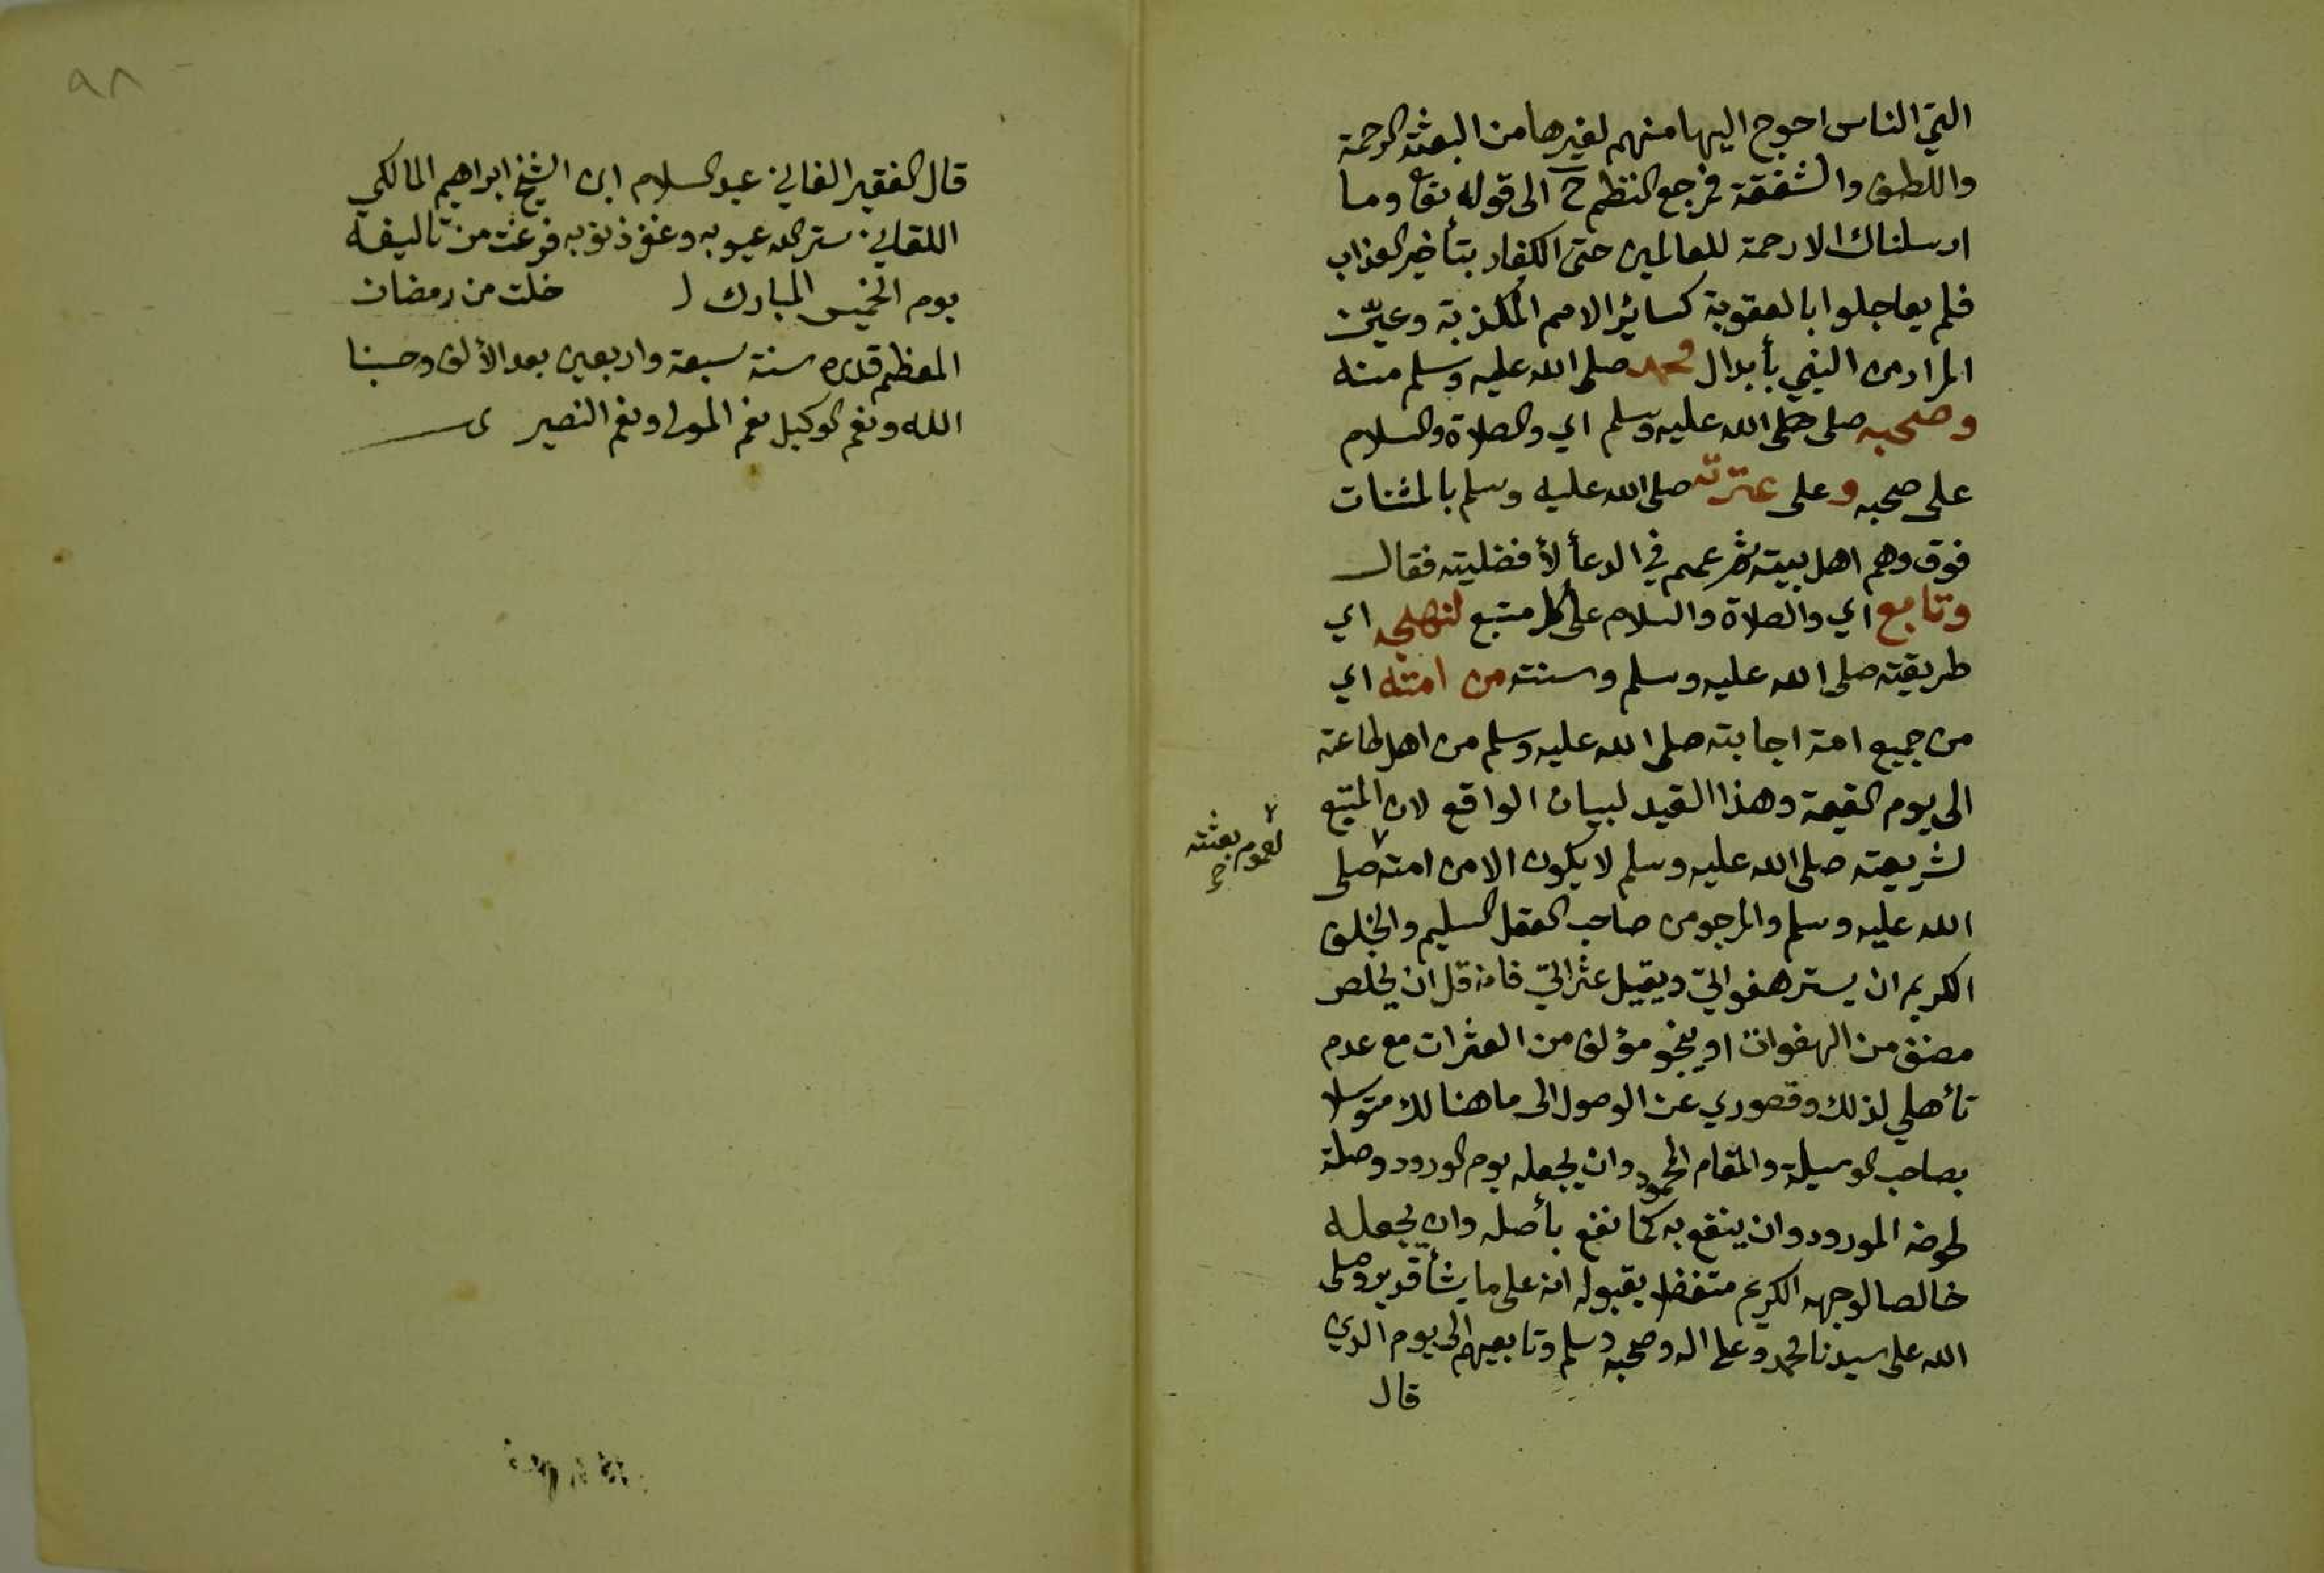 التي الناس احوج اليها منهم لغيرها من البعثة الرحمة
واللطف والشفقة فرجع النظم ح الى قوله تع وما
ارسلناك الا رحمة للعالمين حتى الكفار بتأخير العذاب
فلم يعاجلوا بالعقوبة كسائر الامم المكذبة وعيّن
المراد من النبي بأبدال محمد صلى الله عليه وسلم منه
وصحبه صلى الله عليه وسلم اي والصلاة والسلام
على صحبه وعلى عترته صلى الله عليه وسلم بالمثنات
فوق وهم اهل بيته ثم عمم في الدعأ لأفضليته فقال
وتابع اي والصلاة والسلام على كل متبع لنهجه اي
طريقته صلى الله عليه وسلم وسنته من امته اي
من جميع امة اجابته صلى الله عليه وسلم من اهل طاعته
الى يوم القيمة وهذا القيد لبيان الواقع لان المتبع
لشريعته صلى الله عليه وسلم لا يكون الا من امته صلى
لعموم بعثته
الله عليه وسلم والمرجو من صاحب العقل السليم والخلق
الكريم ان يستر هفواتي ويقيل عثراتي فانه قل ان يخلص
مصنف من الهفوات او ينجو مؤلف من العثرات مع عدم
تأهلي لذلك وقصوري عن الوصول الى ما هنالك متوسلا
بصاحب الوسيلة والمقام المحمود وان يجعله يوم الورود وصلة
لحوضه المورود وان ينفع به كما نفع بأصله وان يجعله
خالصا لوجهه الكريم متفضلا بقبوله انه على ما يشأ قدير وصلى
الله على سيدنا محمد وعلى اله وصحبه وسلم وتابعيهم الى يوم الدين
قال
٩٨
قال الفقير الفاني عبد السلام ابن الشيخ ابراهيم المالكي
اللقاني ستر الله عيوبه وغفر ذنوبه فرغت من تاليفه
يوم الخميس المبارك ل خلت من رمضان
المعظم قدره سنة سبعة واربعين بعد الألف وحسبنا
الله ونعم الوكيل نعم المولى ونعم النصير